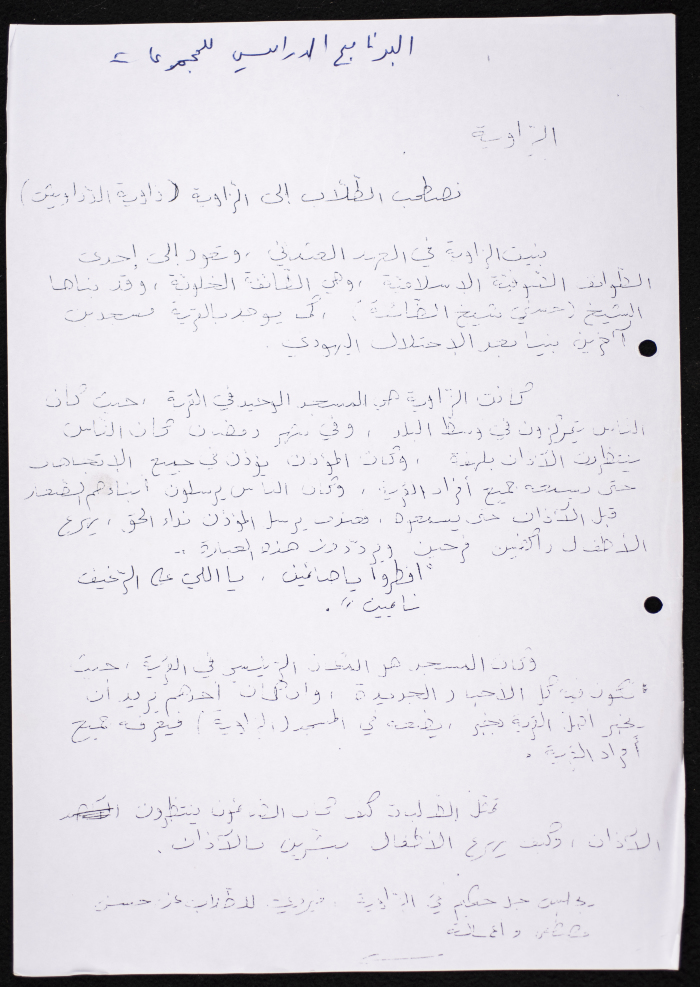 البرنامج الدراسي للمجموعات
الزاوية
نصطحب الطلاب إلى الزاوية (زاوية الدراويش)
بنيت الزاوية في العهد العثماني ، وتعود إلى إحدى
الطوائف الصوفية الإسلامية ، وهي الطائفة الخلوتية ، وقد بناها
الشيخ (حسني شيخ الطائفة) ، كما يوجد بالقرية مسجدين
آخرين بنيا بعد الاحتلال اليهودي .
كانت الزاوية هو المسجد الوحيد في القرية ، حيث كان
الناس يتمركزون في وسط البلد ، وفي شهر رمضان كان الناس
ينتظرون الآذان بلهفة ، وكان المؤذن يؤذن في جميع الاتجاهات
حتى يسمعه جميع أفراد القرية ، وكان الناس يرسلون أبناءهم الصغار
قبل الآذان حتى يسمعوه ، فعندما يرسل المؤذن نداء الحق ، يهرع
الأطفال راكضين فرحين ويرددون هذه العبارة :-
"افطروا يا صائمين ، يا اللي على الرغيف
نايمين" .
وكان المسجد هو المكان الرئيسي في القرية ، حيث
تكون فيه كل الأخبار الجديدة ، وان كان أحدهم يريد أن
يخبر أهل القرية بخبر ، يضعه في المسجد (الزاوية) فيعرفه جميع
أفراد القرية .
تمثل الطلبة كيف كان القرويون ينتظرون
الآذان ، وكيف يهرع الأطفال مبشرين بالآذان .
يجلس جد حكيم في الزاوية ، فيروي للطلاب عن حسن